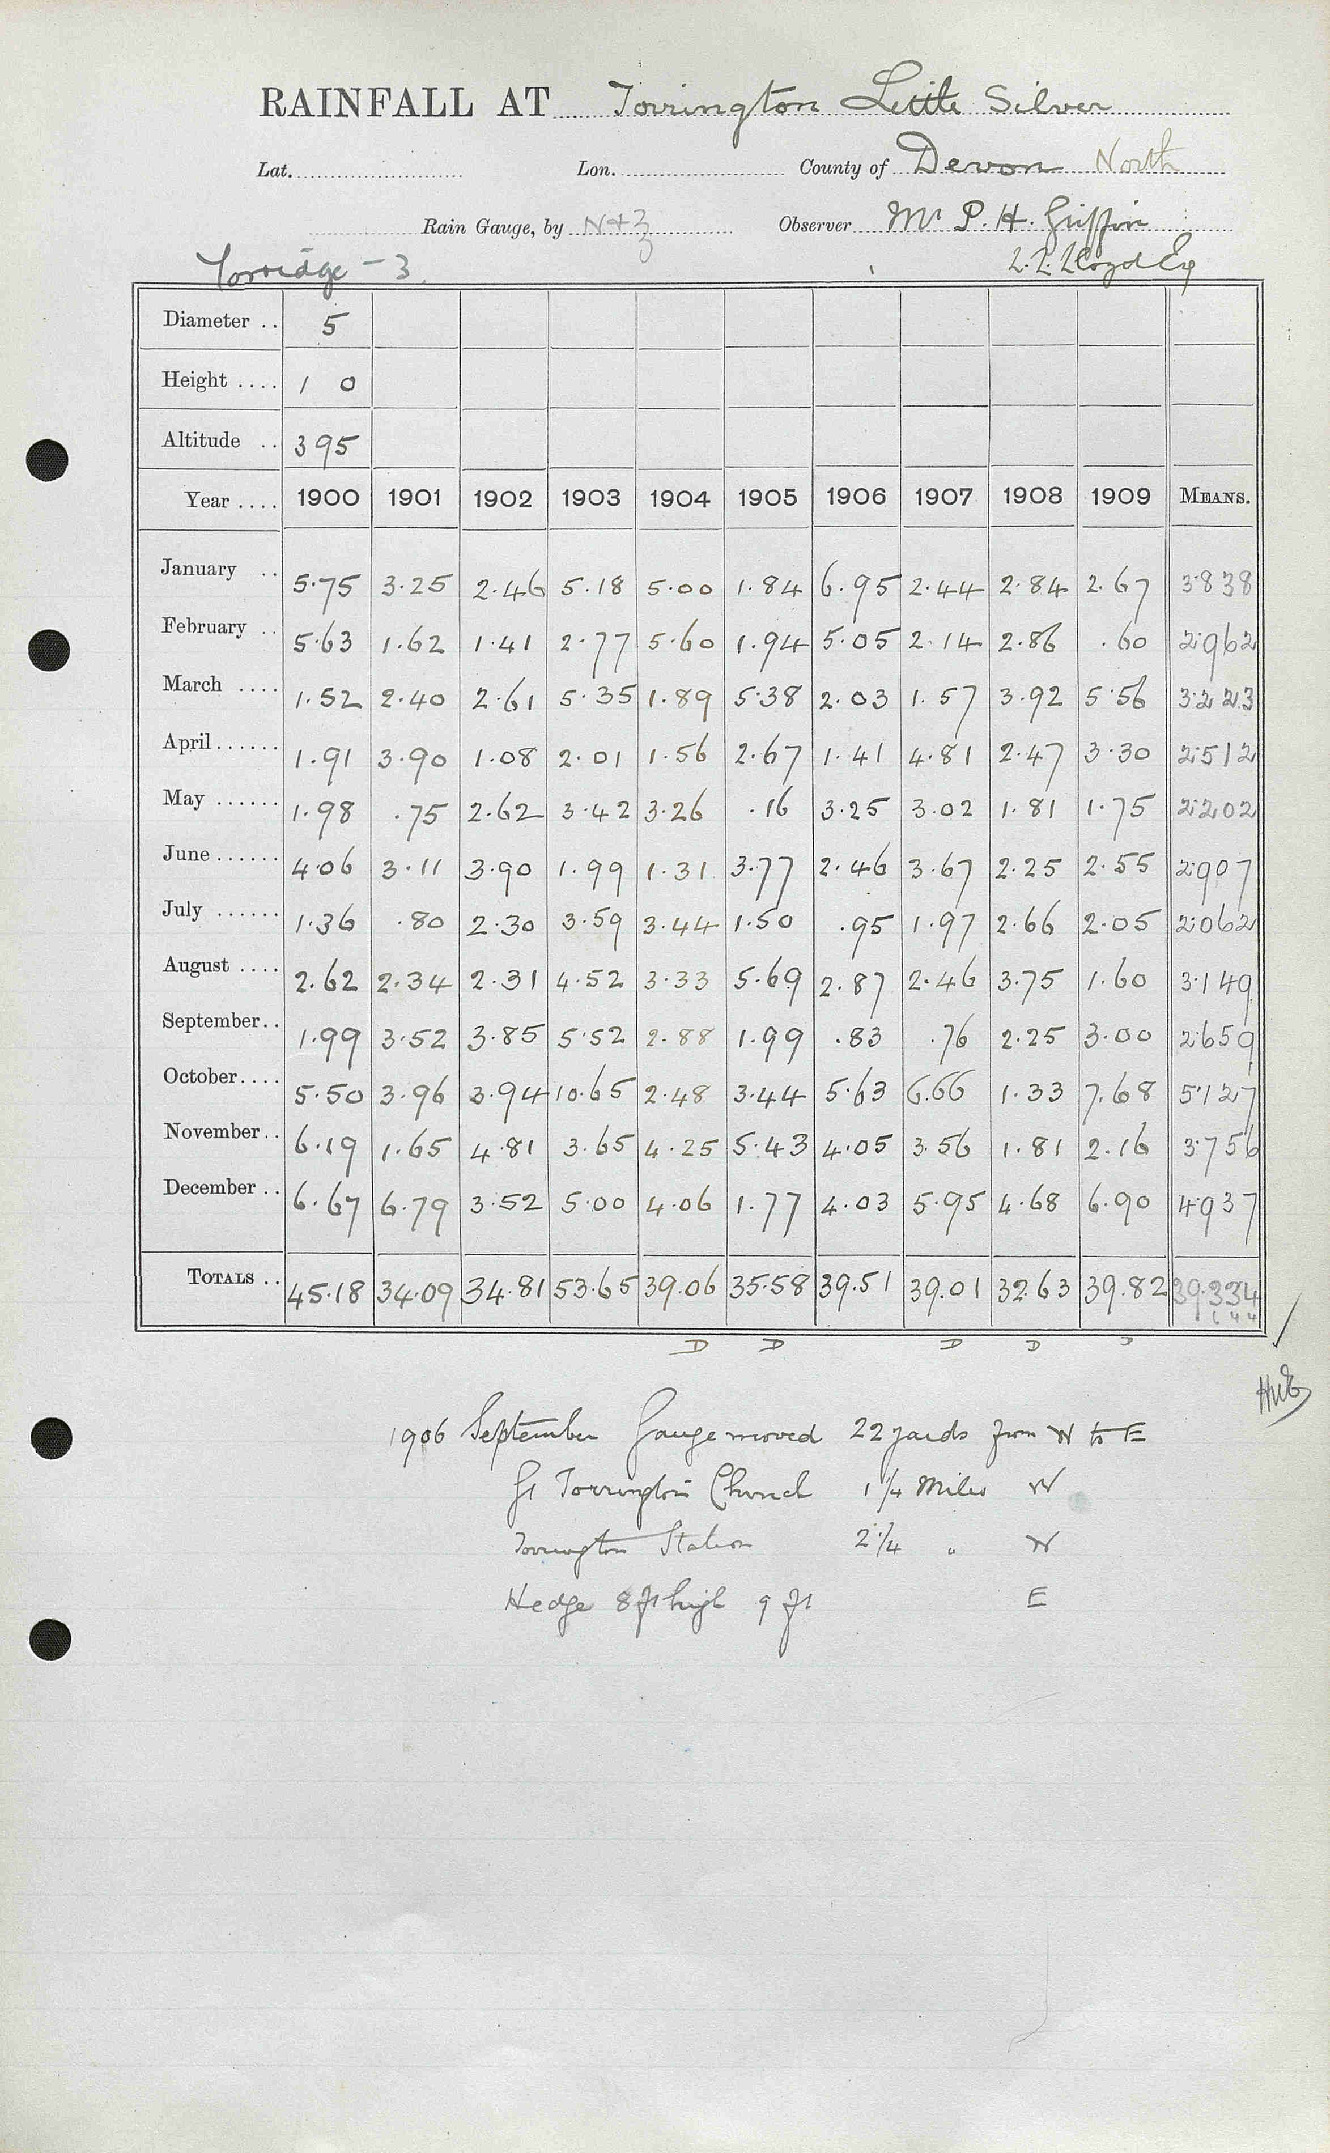 RAINFALL AT Torrington Little Silver
Lat. Lon. County of Devon North
Rain Gauge, by N+Z Observer Mr P. H. Griffin
Torridge - 3 Lloyd Esq
Diameter .. 5
Height .... 1 0
Altitude .. 395
Year .... 1900 1901 1902 1903 1904 1905 1906 1907 1908 1909 MEANS.
January .. 5.75 3.25 2.46 5.18 5.00 1.84 6.95 2.44 2.84 2.67 3.838
February .. 5.63 1.62 1.41 2.77 5.60 1.94 5.05 2.14 2.86 .60 2.962
March .... 1.52 2.40 2.61 5.35 1.89 5.38 2.03 1.57 3.92 5.56 3.223
April...... 1.91 3.90 1.08 2.01 1.56 2.67 1.41 4.81 2.47 3.30 2.512
May ...... 1.98 .75 2.62 3.42 3.26 .16 3.25 3.02 1.81 1.75 2.202
June ...... 4.06 3.11 3.90 1.99 1.31 3.77 2.46 3.67 2.25 2.55 2.907
July ...... 1.36 .80 2.30 3.59 3.44 1.50 .95 1.97 2.66 2.05 2.062
August .... 2.62 2.34 2.31 4.52 3.33 5.69 2.87 2.46 3.75 1.60 3.149
September.. 1.99 3.52 3.85 5.52 2.88 1.99 .83 .76 2.25 3.00 2.659
October.... 5.50 3.96 3.94 10.65 2.48 3.44 5.63 6.66 1.33 7.68 5.127
November.. 6.19 1.65 4.81 3.65 4.25 5.43 4.05 3.56 1.81 2.16 3.756
December .. 6.67 6.79 3.52 5.00 4.06 1.77 4.03 5.95 4.68 6.90 4.937
TOTALS .. 45.18 34.09 34.81 53.65 39.06 35.58 39.51 39.01 32.63 39.82 39.334
D D D D D
1906 September Gauge moved 22 yards from W to E
Gt Torrington Church 1 1/4 Miles W
Torrington Station 2 1/4 " W
Hedge 8 ft high 9 ft E